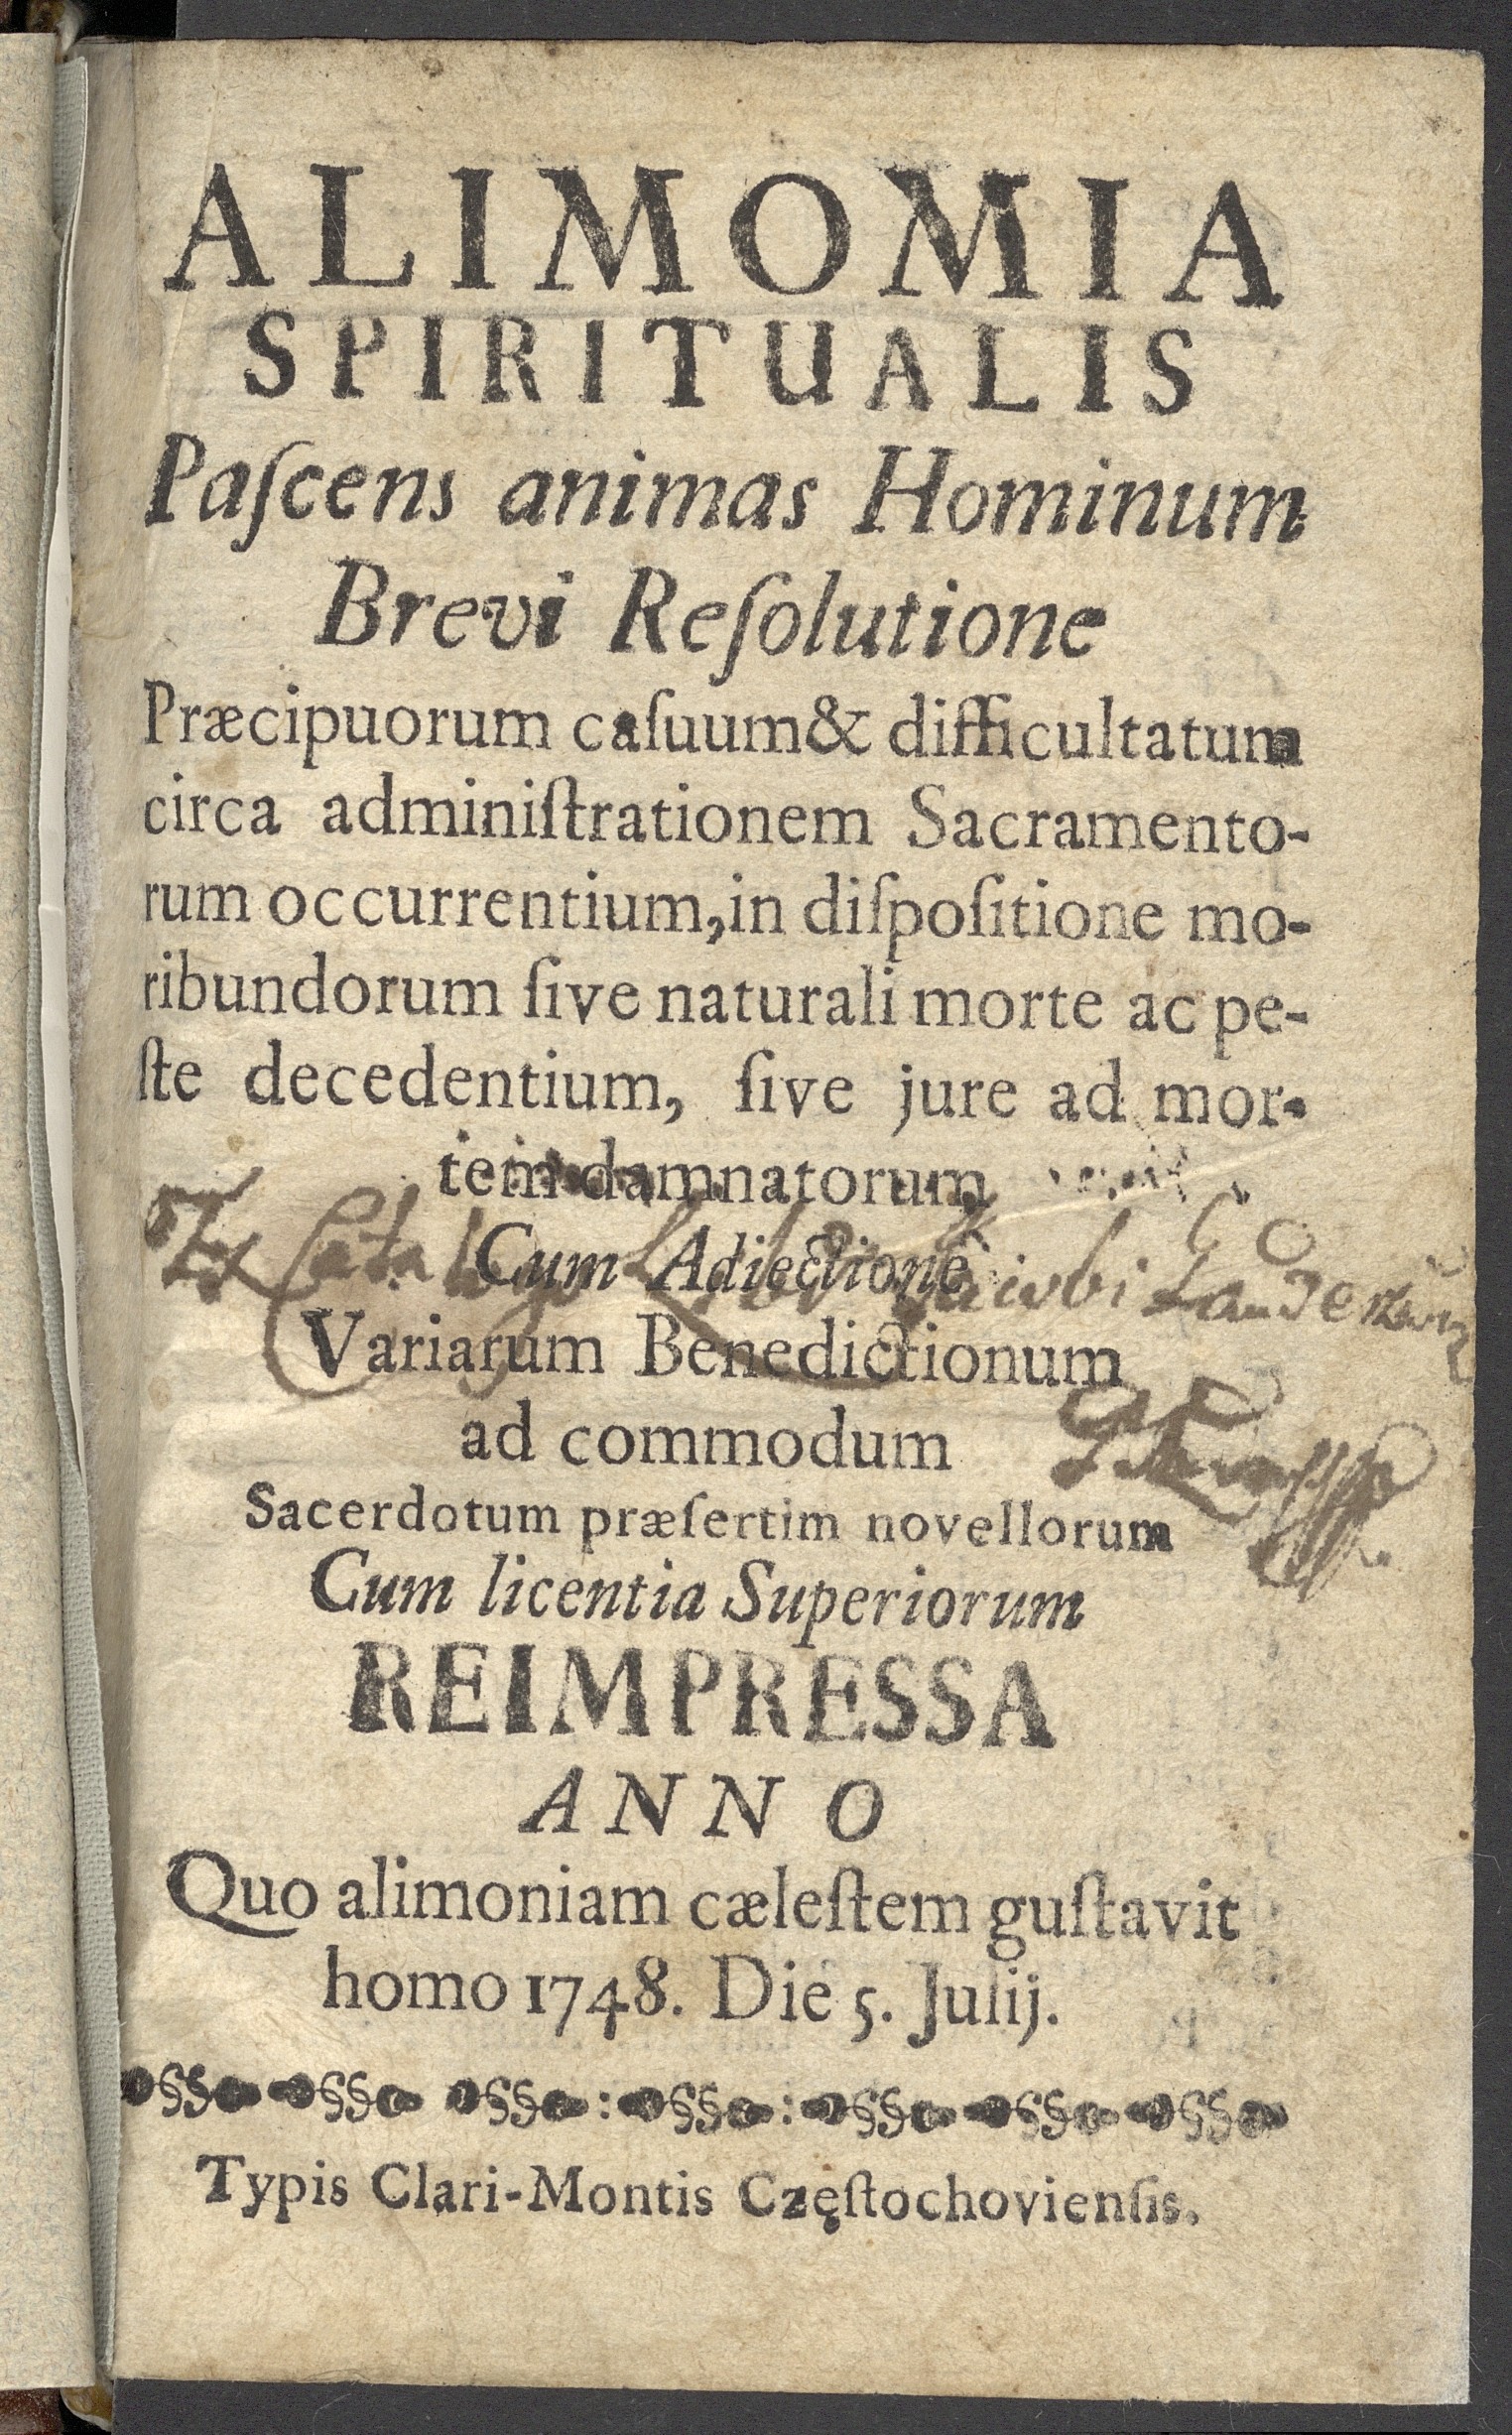 ALIMOMIA
SPIRITUALIS
Paſcens animas Hominum
Brevi Reſolutione
Præcipuorum caſuum & difficultatum
circa adminiſtrationem Sacramento-
rum occurrentium, in diſpoſitione mo-
ribundorum ſive naturali morte ac pe-
ſte decedentium, ſive jure ad mor-
tem damnatorum
Cum Adiectione
Ex
Variarum Benedictionum
ad commodum
Sacerdotum præſertim novellorum
Cum licentia Superiorum
REIMPRESSA
ANNO
Quo alimoniam cæleſtem guſtavit
homo 1748. Die 5. Julij.
Typis Clari-Montis Częſtochovienſis.